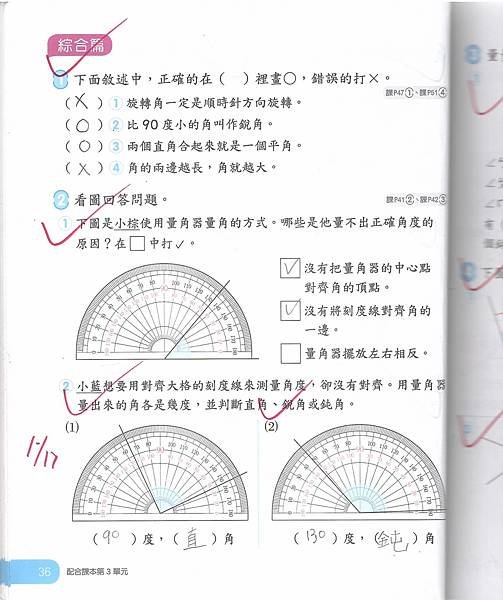 綜合篇
1 下面敘述中，正確的在（ ）裡畫○，錯誤的打×。
課P47①、課P51④
（×）① 旋轉角一定是順時針方向旋轉。
（○）② 比90度小的角叫作銳角。
（○）③ 兩個直角合起來就是一個平角。
（×）④ 角的兩邊越長，角就越大。
2 看圖回答問題。
課P41②、課P42③
① 下圖是小棕使用量角器量角的方式。哪些是他量不出正確角度的
原因？在□中打✓。
☑ 沒有把量角器的中心點
對齊角的頂點。
☑ 沒有將刻度線對齊角的
一邊。
□ 量角器擺放左右相反。
② 小藍想要用對齊大格的刻度線來測量角度，卻沒有對齊。用量角器
量出來的角各是幾度，並判斷直角、銳角或鈍角。
(1) (2)
11/17
（90）度，（直）角 （130）度，（鈍）角
36 配合課本第3單元